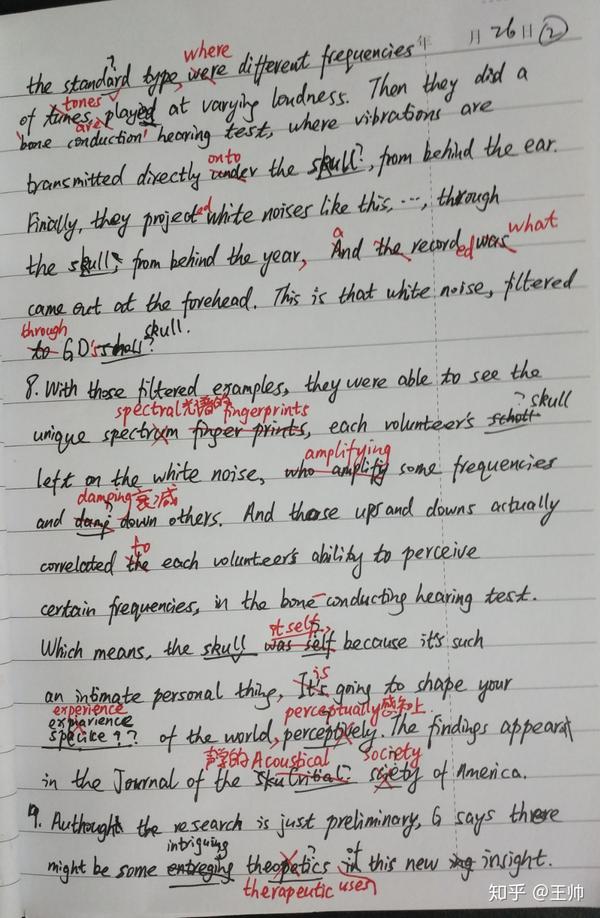 年 月 26 日 ②
the standard type, were where different frequencies
of tunes, tones played at varying loudness. Then they did a
bone are conduction hearing test, where vibrations are
transmitted directly under onto the skull?, from behind the ear.
Finally, they projected white noises like this, ..., through
the skull, from behind the year, a And the recorded was what
came out at the forehead. This is that white noise, filtered
to through GD's skull? skull.
8. With those filtered examples, they were able to see the
unique spectrum spectral 光谱的 finger prints fingerprints, each volunteer's schott ? skull
left on the white noise, who amplify amplifying some frequencies
and damp damping 衰减 down others. And those ups and downs actually
correlated the to each volunteer's ability to perceive
certain frequencies, in the bone-conducting hearing test.
Which means, the skull was self itself, because it's such
an intimate personal thing, It's is going to shape your
spelike?? experience of the world, perceptively perceptually 感知上. The findings appearat
in the Journal of the 声学的 Acoustical society society of America.
9. Authought the research is just preliminary, G says there
might be some entreging intriguing theopetics therapeutic uses if in this new insight.
知乎 @王帅